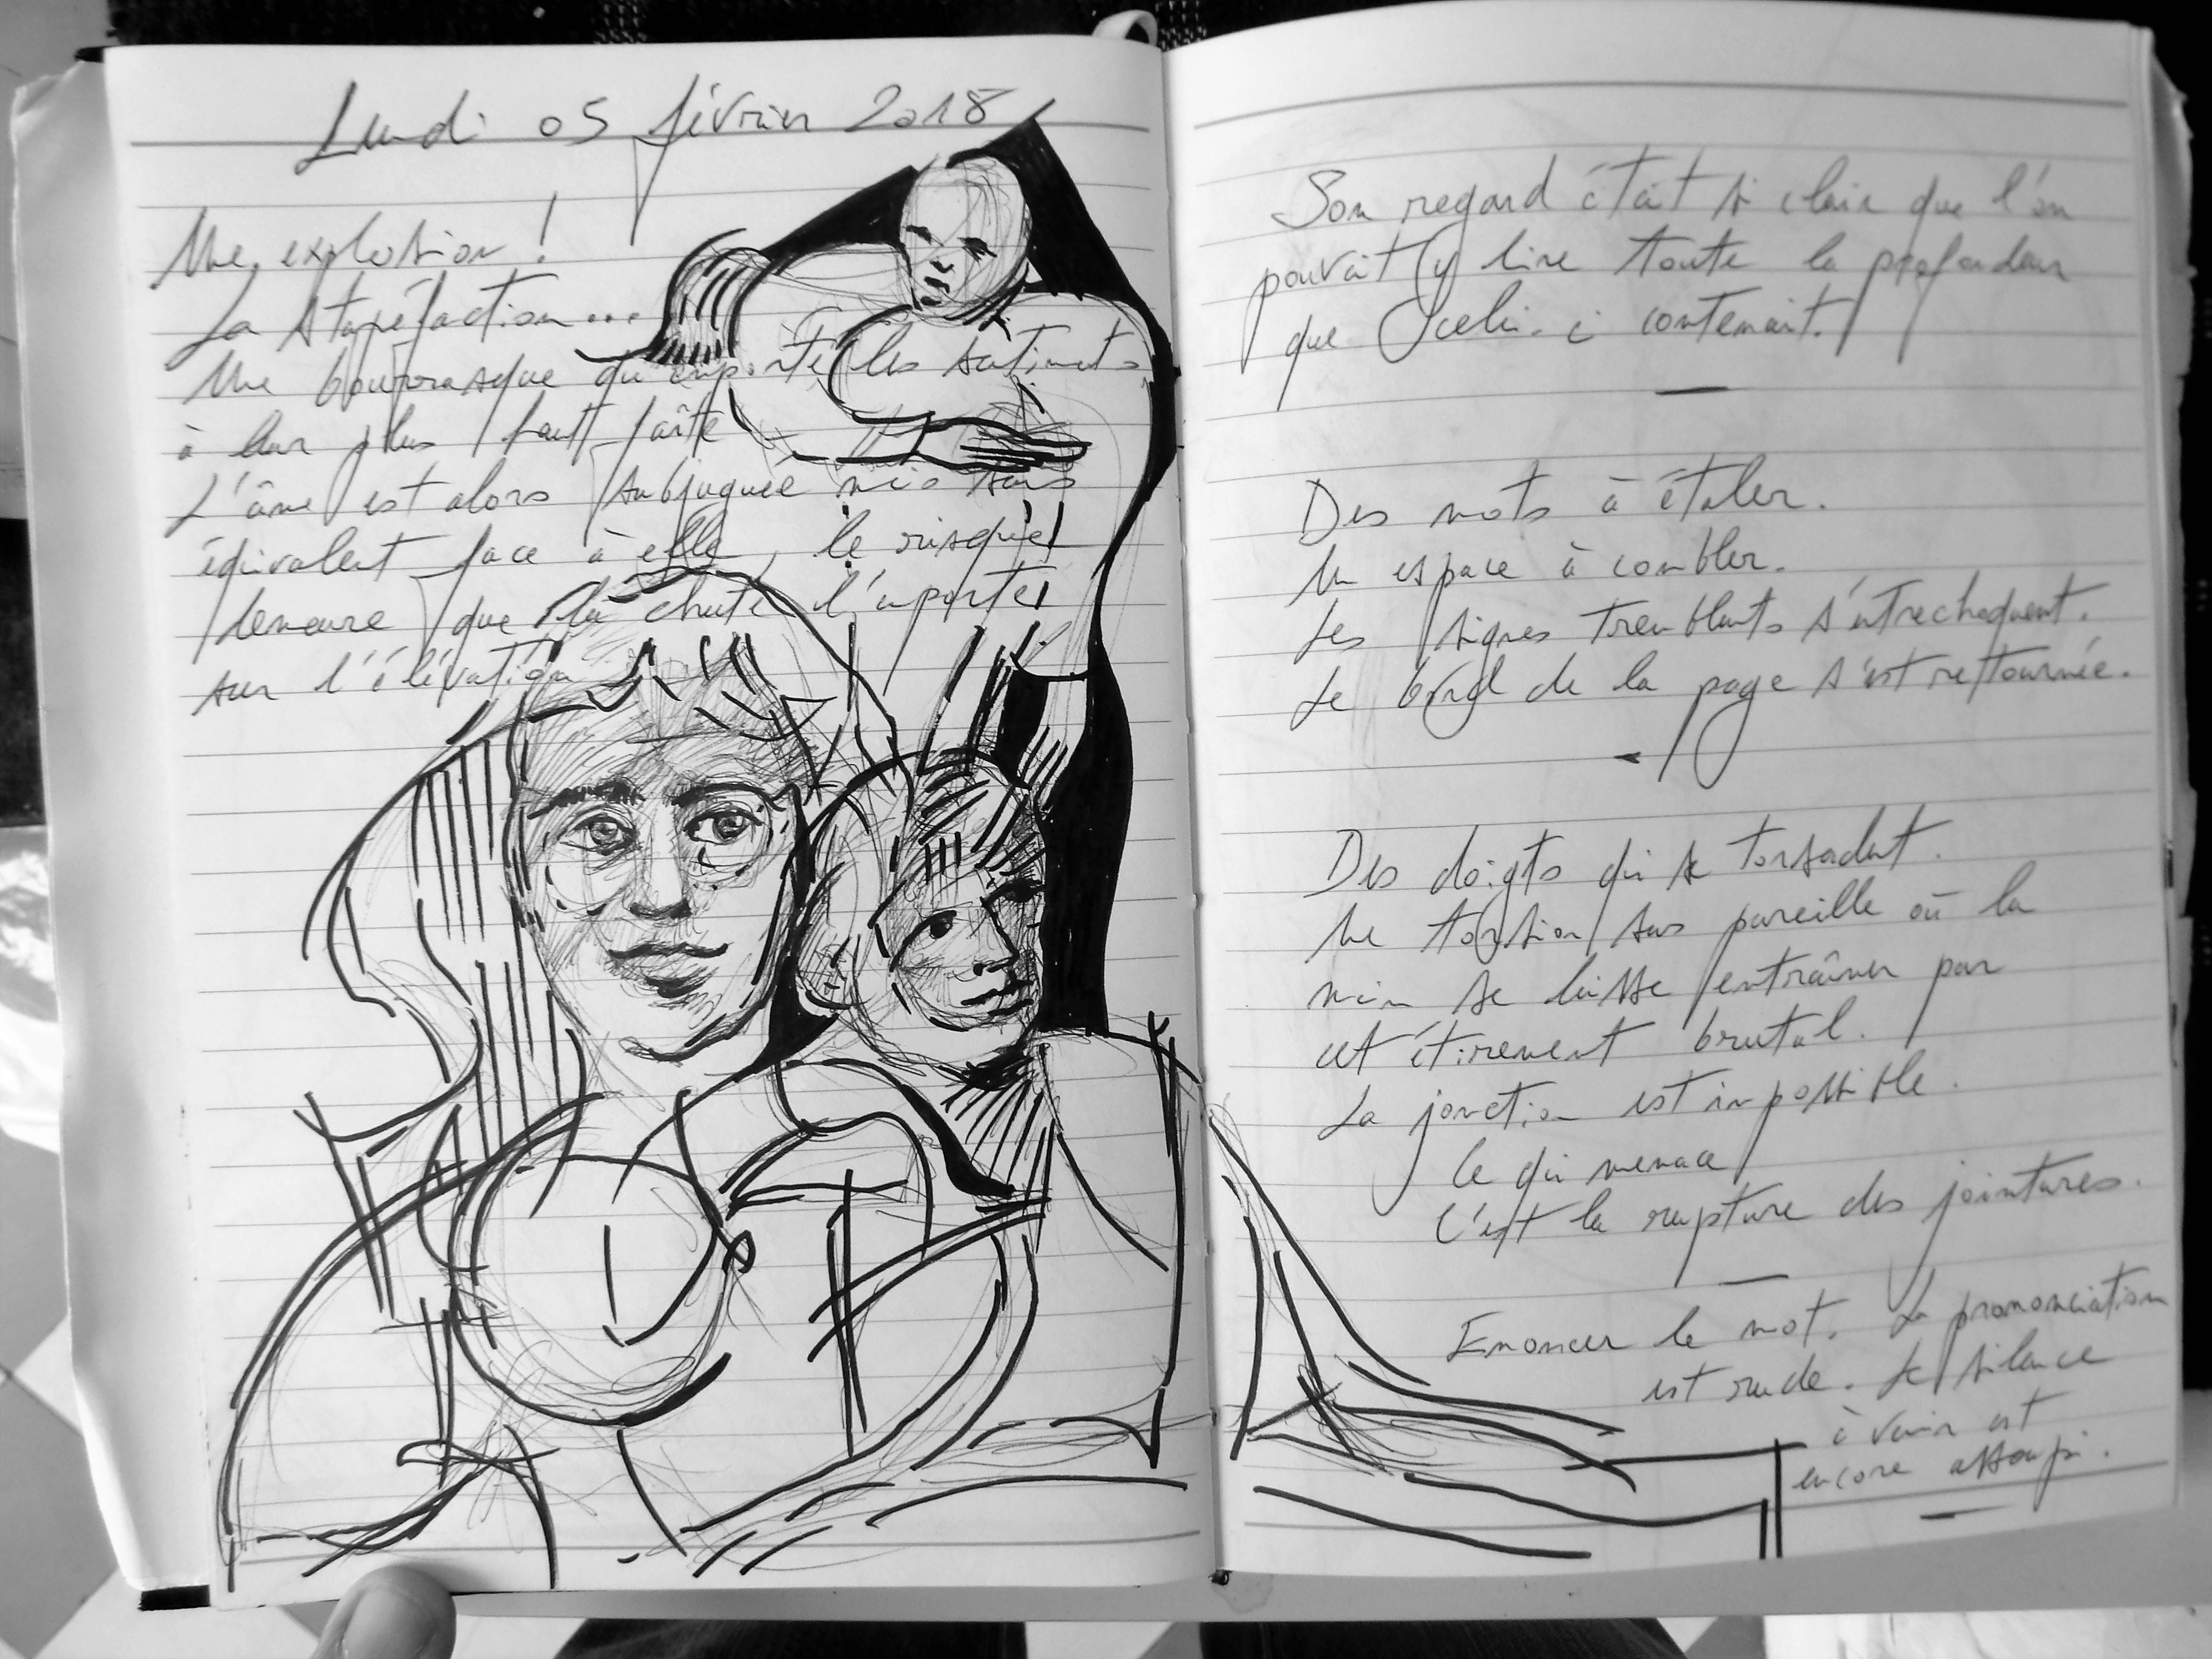 Lundi 05 février 2018
Une explosion !
La stupéfaction...
Une bourrasque qui emporte les sentiments
à leur plus haut faîte
L'âme est alors subjuguée mis sans
équivalent face à elle, le risque
demeure que la chute l'emporte
sur l'élévation
Son regard était si clair que l'on
pouvait y lire toute la profondeur
que celui-ci contenait.
Des mots à étaler.
Un espace à combler.
Les signes tremblants s'entrechoquent.
Le bord de la page s'est retournée.
Des doigts qui se torsadent.
Une torsion sans pareille où la
main se laisse entraîner par
cet étirement brutal.
La jonction est impossible.
Ce qui menace
C'est la rupture des jointures.
Enoncer le mot. La prononciation
est rude. Le silence
à venir est
encore assoupi.